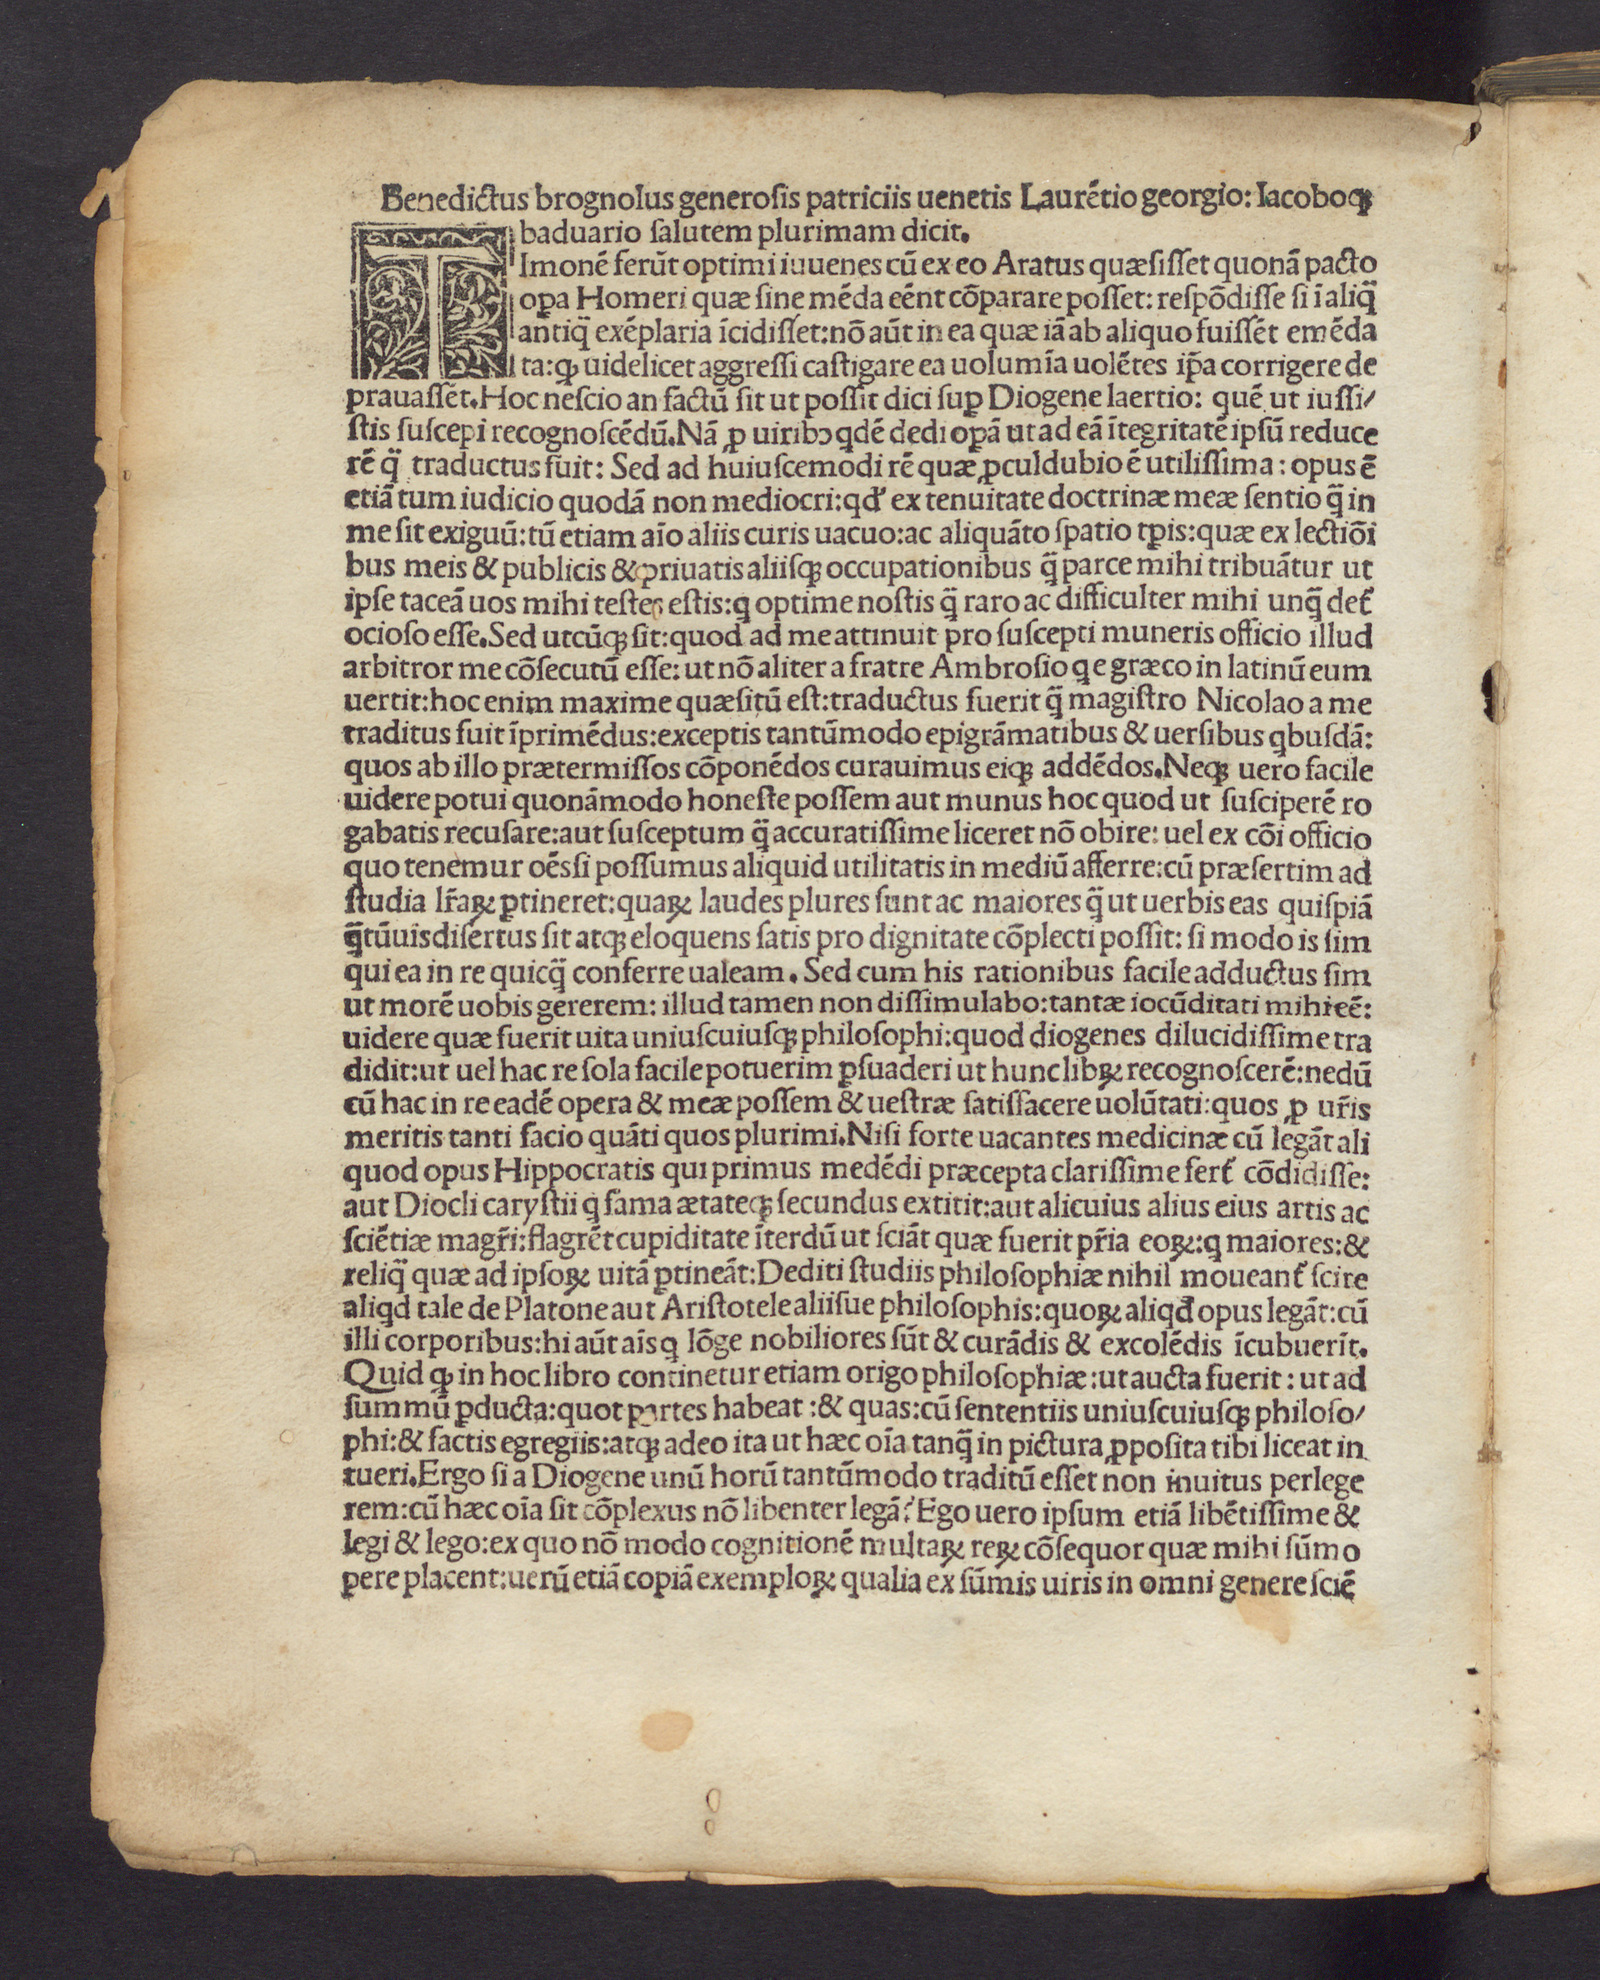 Benedictus brognolus generosis patriciis uenetis Laurẽtio georgio: Iacoboqꝫ
baduario ſalutem plurimam dicit.
TImonẽ ferũt optimi iuuenes cũ ex eo Aratus quæſiſſet quonã pacto
oꝑa Homeri quæ ſine mẽda eẽnt cõparare poſſet: reſpõdiſſe ſi ĩ aliq̃
añtiq̃ exẽplaria ĩcidiſſet: nõ aũt in ea quæ iã ab aliquo fuiſſẽt emẽda
ta: ꝙ uidelicet aggreſſi caſtigare ea uolumĩa uolẽtes ip̃a corrigere de
prauaſſẽt. Hoc neſcio an factũ ſit ut poſſit dici ſuꝑ Diogene laertio: quẽ ut iuſſi/
ſtis ſuſcepi recognoſcẽdũ. Nã ꝓ uiribꝰ qdẽ dedi oꝑã ut ad eã ĩtegritatẽ ipſũ reduce
rẽ q̃ traductus fuit: Sed ad huiuſcemodi rẽ quæ ꝓculdubio ẽ utiliſſima: opus ẽ
etiã tum iudicio quodã non mediocri: qd̕ ex tenuitate doctrinæ meæ ſentio q̃ in
me ſit exiguũ: tũ etiam aĩo aliis curis uacuo: ac aliquãto ſpatio tꝑis: quæ ex lectiõi
bus meis & publicis & priuatis aliiſqꝫ occupationibus q̃ parce mihi tribuãtur ut
ipſe taceã uos mihi teſtes eſtis: ꝗ optime noſtis q̃ raro ac difficulter mihi unq̃ det̕
ocioſo eſſe. Sed utcũqꝫ ſit: quod ad me attinuit pro ſuſcepti muneris officio illud
arbitror me cõſecutũ eſſe: ut nõ aliter a fratre Ambroſio ꝗ e græco in latinũ eum
uertit: hoc enim maxime quæſitũ eſt: traductus fuerit q̃ magiſtro Nicolao a me
traditus fuit ĩprimẽdus: exceptis tantũmodo epigrãmatibus & uerſibus ꝗbuſdã:
quos ab illo prætermiſſos cõponẽdos curauimus eiqꝫ addẽdos. Neqꝫ uero facile
uidere potui quonãmodo honeſte poſſem aut munus hoc quod ut ſuſciperẽ ro
gabatis recuſare: aut ſuſceptum q̃ accuratiſſime liceret nõ obire: uel ex cõi officio
quo tenemur oẽs ſi poſſumus aliquid utilitatis in mediũ afferre: cũ præſertim ad
ſtudia lr̃aꝝ ꝑtineret: quaꝝ laudes plures ſunt ac maiores q̃ ut uerbis eas quiſpiã
q̃tũuis diſertus ſit atqꝫ eloquens ſatis pro dignitate cõplecti poſſit: ſi modo is ſim
qui ea in re quicq̃ conferre ualeam. Sed cum his rationibus facile adductus ſim
ut morẽ uobis gererem: illud tamen non diſſimulabo: tantæ iocũditati mihi eẽ:
uidere quæ fuerit uita uniuſcuiuſqꝫ philoſophi: quod diogenes dilucidiſſime tra
didit: ut uel hac re ſola facile potuerim ꝑſuaderi ut hunc libꝝ recognoſcerẽ: nedũ
cũ hac in re eadẽ opera & meæ poſſem & ueſtræ ſatisfacere uolũtati: quos ꝓ ur̃is
meritis tanti facio quãti quos plurimi. Niſi forte uacantes medicinæ cũ legãt ali
quod opus Hippocratis qui primus medẽdi præcepta clariſſime fert̕ cõdidiſſe:
aut Diocli caryſtii ꝗ fama ætateqꝫ ſecundus extitit: aut alicuius alius eius artis ac
ſciẽtiæ magr̃i: flagrẽt cupiditate ĩterdũ ut ſciãt quæ fuerit pr̃ia eoꝝ: ꝗ maiores: &
reliq̃ quæ ad ipſoꝝ uitã ꝑtineãt: Dediti ſtudiis philoſophiæ nihil moueant̕ ſcire
aliꝗd tale de Platone aut Ariſtotele aliiſue philoſophis: quoꝝ aliꝗd opus legãt: cũ
illi corporibus: hi aũt aĩs ꝗ lõge nobiliores ſũt & curãdis & excolẽdis ĩcubuerĩt.
Quid ꝙ in hoc libro continetur etiam origo philoſophiæ: ut aucta fuerit: ut ad
ſummũ ꝑducta: quot partes habeat: & quas: cũ ſententiis uniuſcuiuſqꝫ philoſo/
phi: & factis egregiis: atqꝫ adeo ita ut hæc oĩa tanq̃ in pictura ꝓpoſita tibi liceat in
tueri. Ergo ſi a Diogene unũ horũ tantũmodo traditũ eſſet non inuitus perlege
rem: cũ hæc oĩa ſit cõplexus nõ libenter legã? Ego uero ipſum etiã libẽtiſſime &
legi & lego: ex quo nõ modo cognitionẽ multaꝝ reꝝ cõſequor quæ mihi ſũmo
pere placent: uerũ etiã copiã exemploꝝ qualia ex ſũmis uiris in omni genere ſciẽ